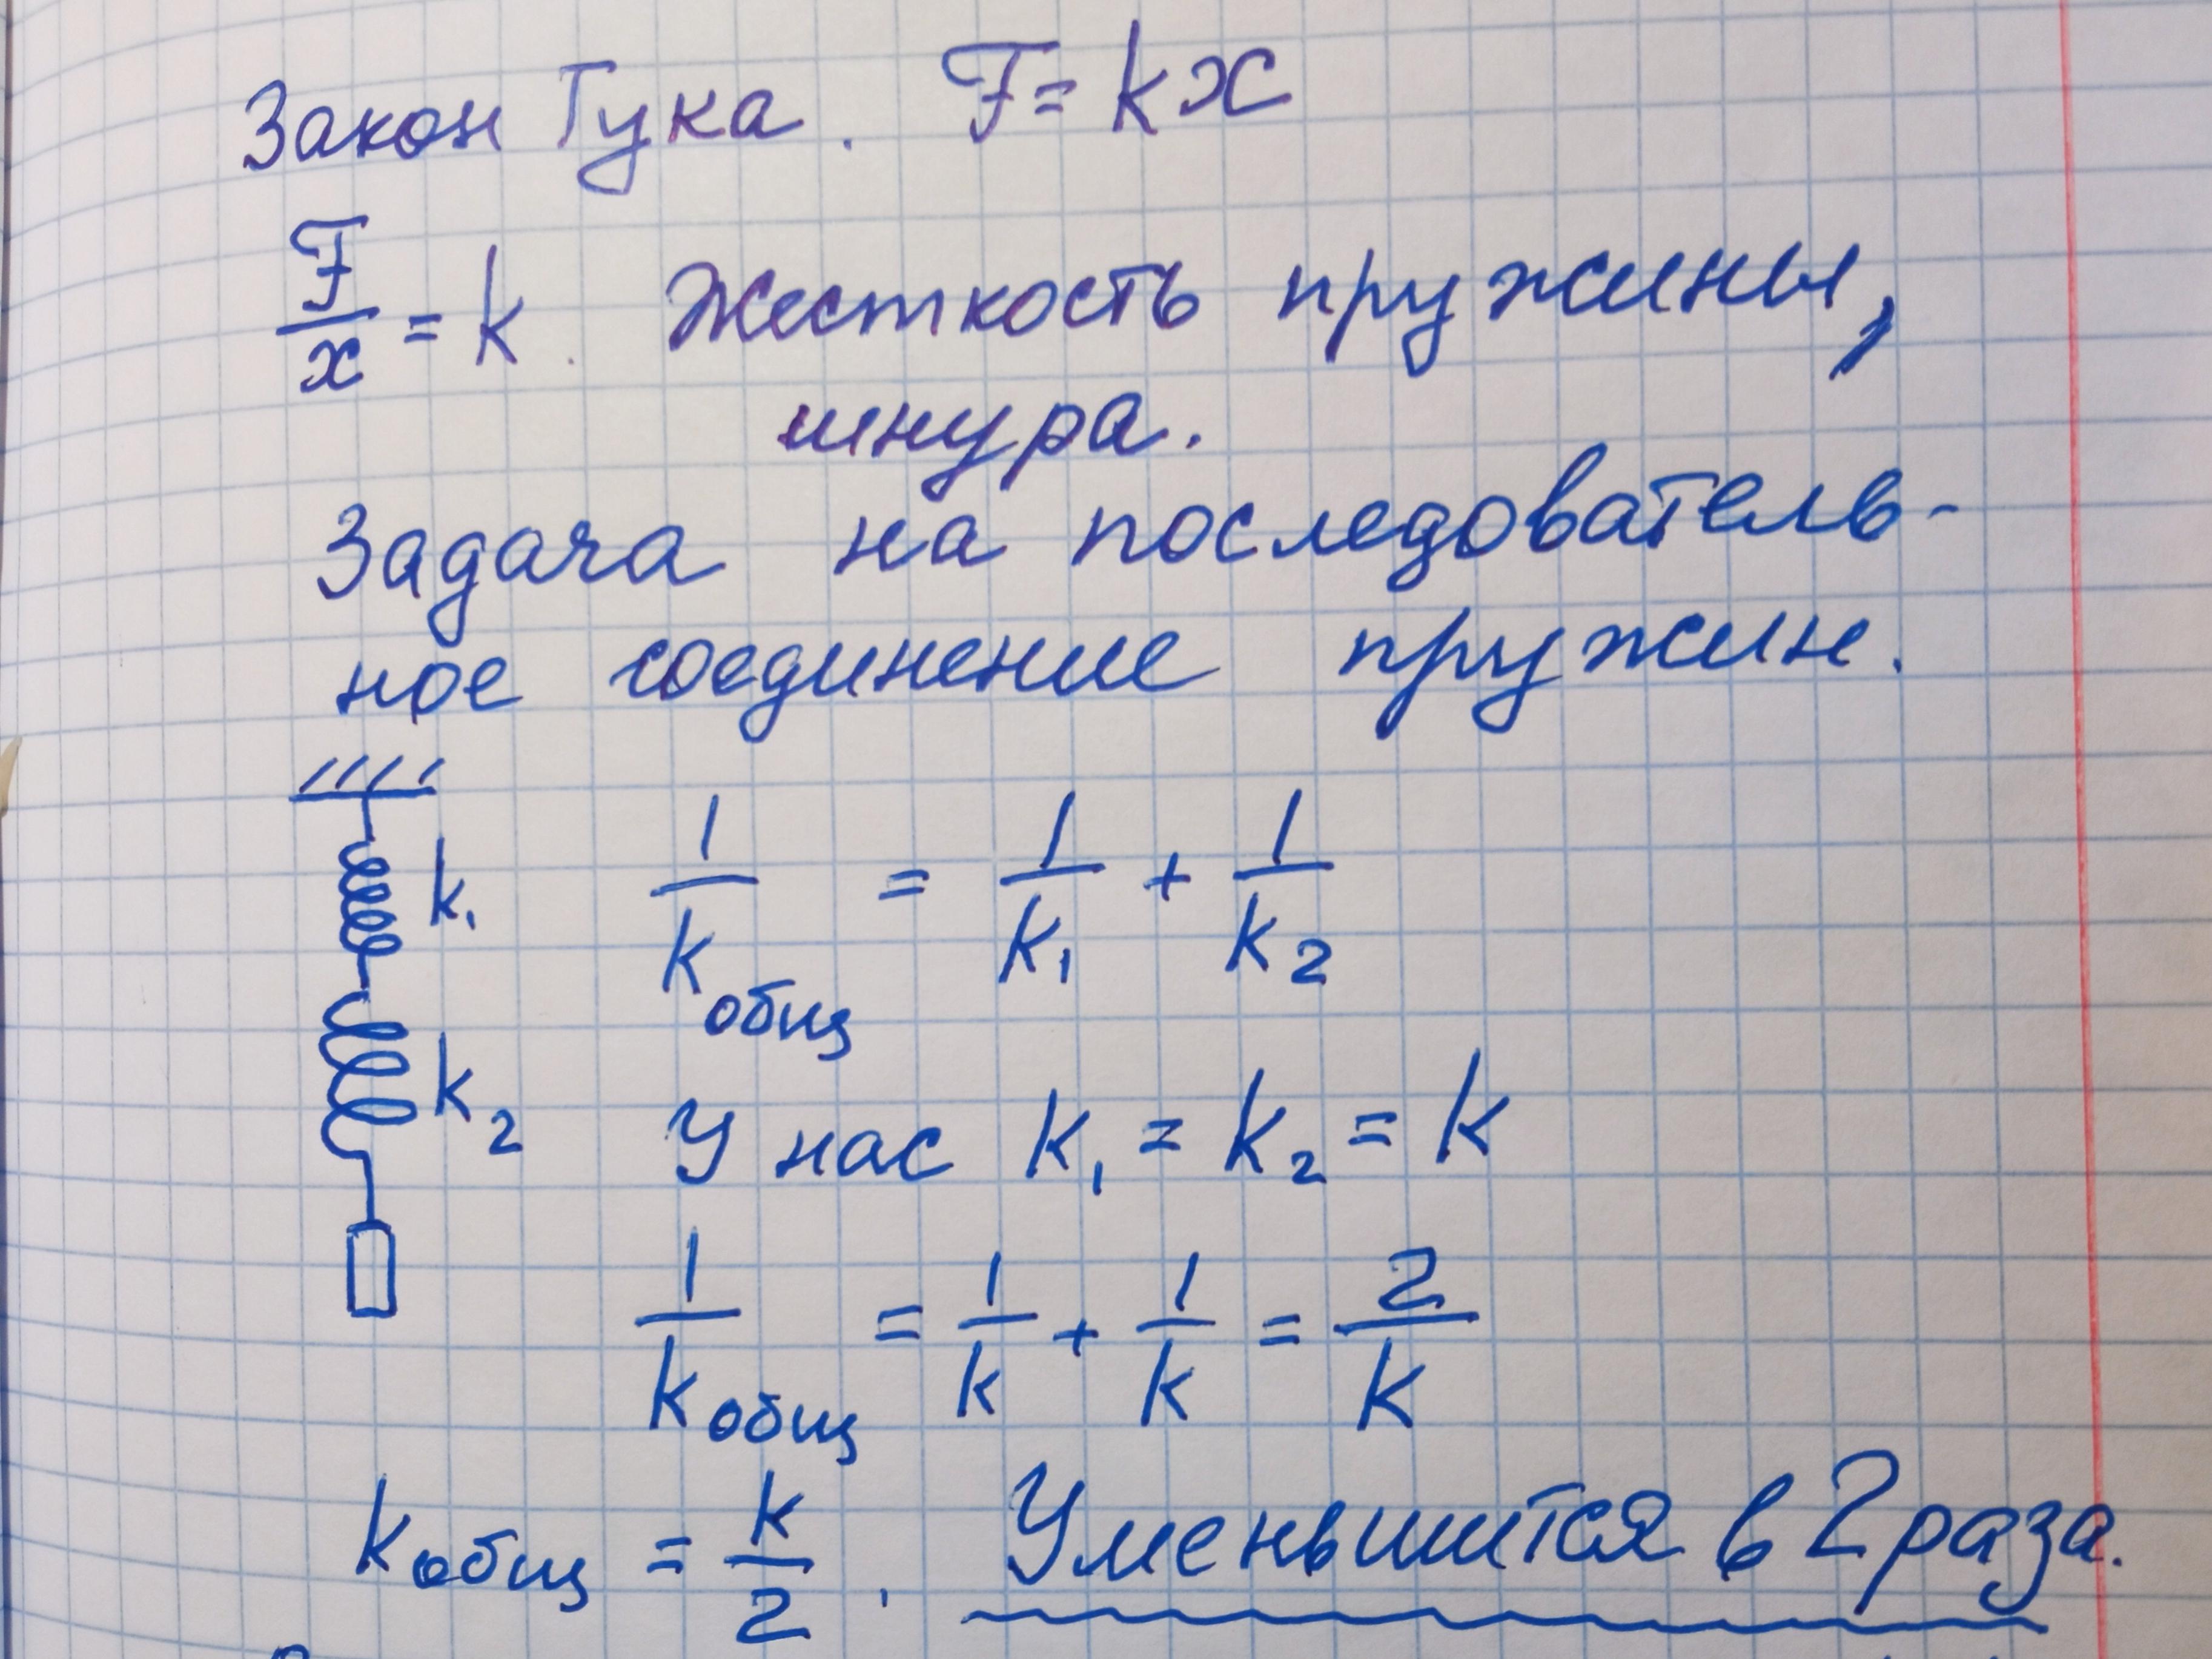 Закон Гука. F = kx
F/x = k. Жесткость пружины,
шнура.
Задача на последователь-
ное соединение пружин.
k₁
1/kобщ = 1/k₁ + 1/k₂
k₂
У нас k₁ = k₂ = k
1/kобщ = 1/k + 1/k = 2/k
kобщ = k/2. Уменьшится в 2 раза.